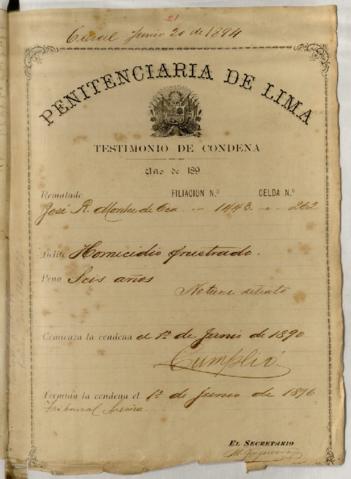 21
Junio 20 de 1894
PENITENCIARIA DE LIMA
TESTIMONIO DE CONDENA
Año de 189
Rematado FILIACION N.º CELDA N.º
José R. Montes de Oca - 1443 - 262
Delito Homicidio frustrado.
Pena Seis años
Comienza la condena el 1º de Junio de 1890
Cumplió
Termina la condena el 1º de Junio de 1896
Tribunal
EL SECRETARIO